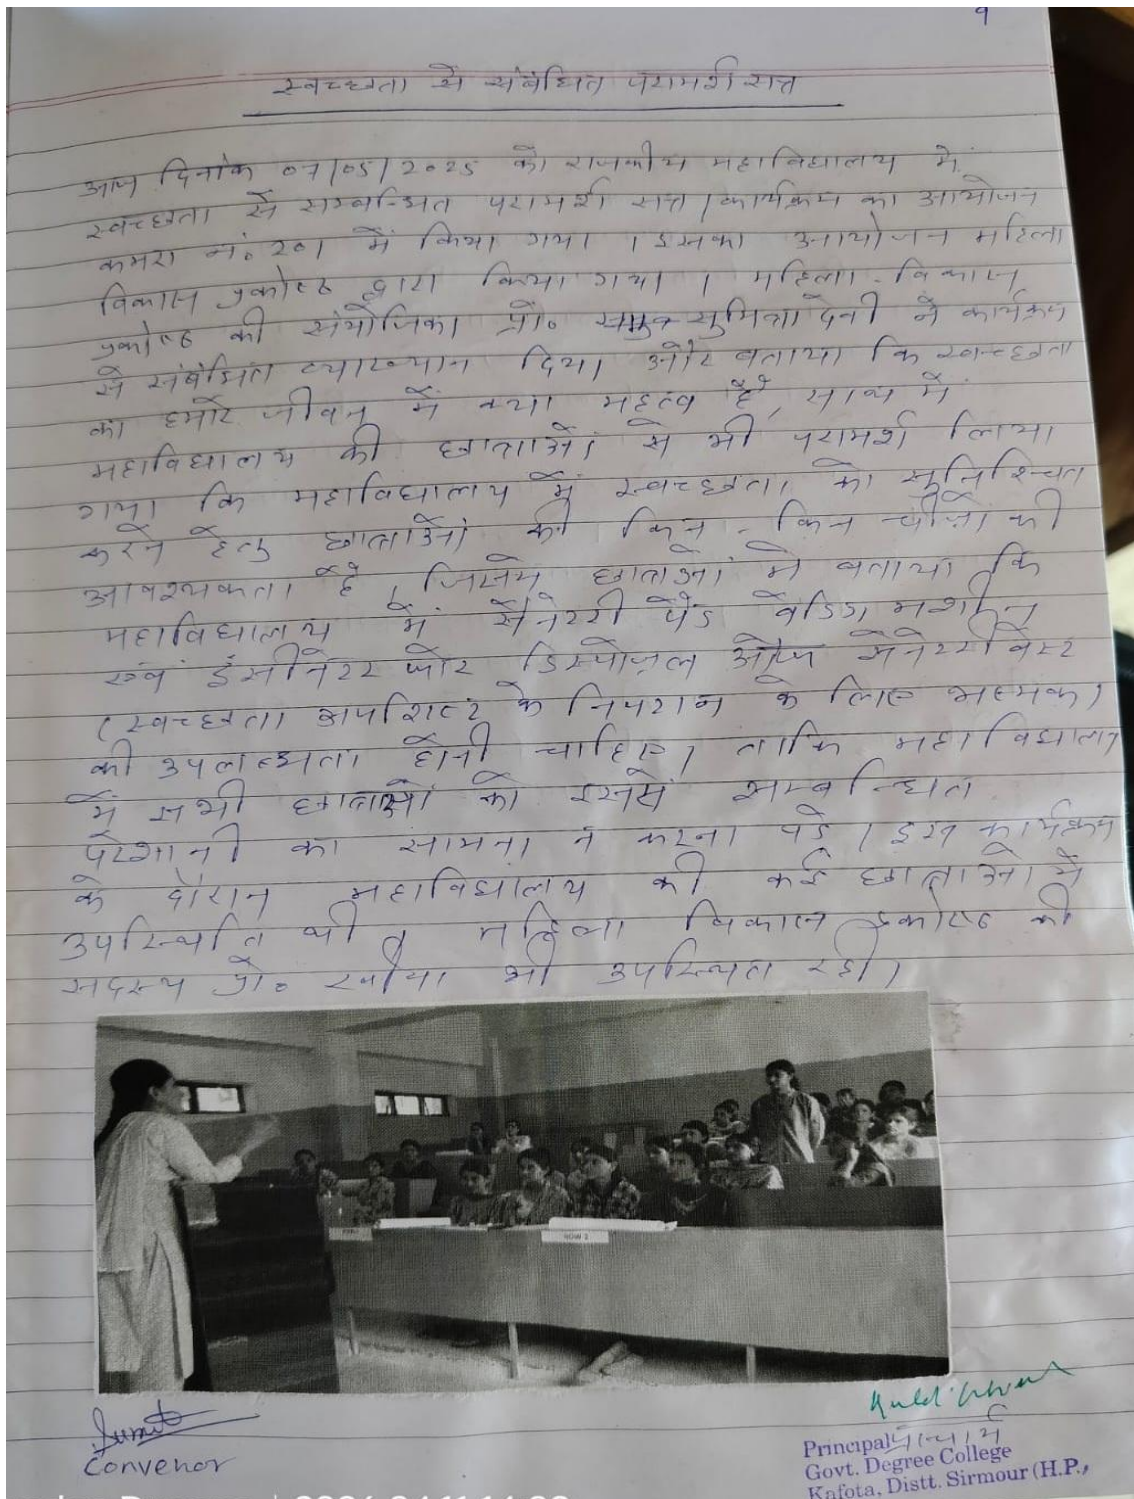 १
स्वच्छता से संबंधित परामर्श सत्र
आज दिनांक 07/05/2025 को राजकीय महाविद्यालय में
स्वच्छता से सम्बन्धित परामर्श सत्र/कार्यक्रम का आयोजन
कमरा नं. 201 में किया गया । इसका आयोजन महिला
विकास प्रकोष्ठ द्वारा किया गया । महिला विकास
प्रकोष्ठ की संयोजिका प्रो. सुमित्रा देवी ने कार्यक्रम
से संबंधित व्याख्यान दिया और बताया कि स्वच्छता
का हमारे जीवन में क्या महत्व है, साथ में
महाविद्यालय की छात्राओं से भी परामर्श लिया
गया कि महाविद्यालय में स्वच्छता को सुनिश्चित
करने हेतु छात्राओं को किन-किन चीजों की
आवश्यकता है, जिसमें छात्राओं ने बताया कि
महाविद्यालय में सैनेटरी पैड वेंडिंग मशीन
एवं इंसीनेटर फोर डिस्पोज़ल ऑफ सैनेटरी वेस्ट
(स्वच्छता अपशिष्ट के निपटान के लिए भस्मक)
की उपलब्धता होनी चाहिए, ताकि महाविद्यालय
में सभी छात्राओं को इससे सम्बन्धित
परेशानी का सामना न करना पड़े । इस कार्यक्रम
के दौरान महाविद्यालय की कई छात्राओं में
उपस्थिति थी व महिला विकास प्रकोष्ठ की
सदस्य प्रो. भी उपस्थित रही।
ROW 2
Sumit
Convenor
Principal प्राचार्य
Govt. Degree College
Kafota, Distt. Sirmour (H.P.)